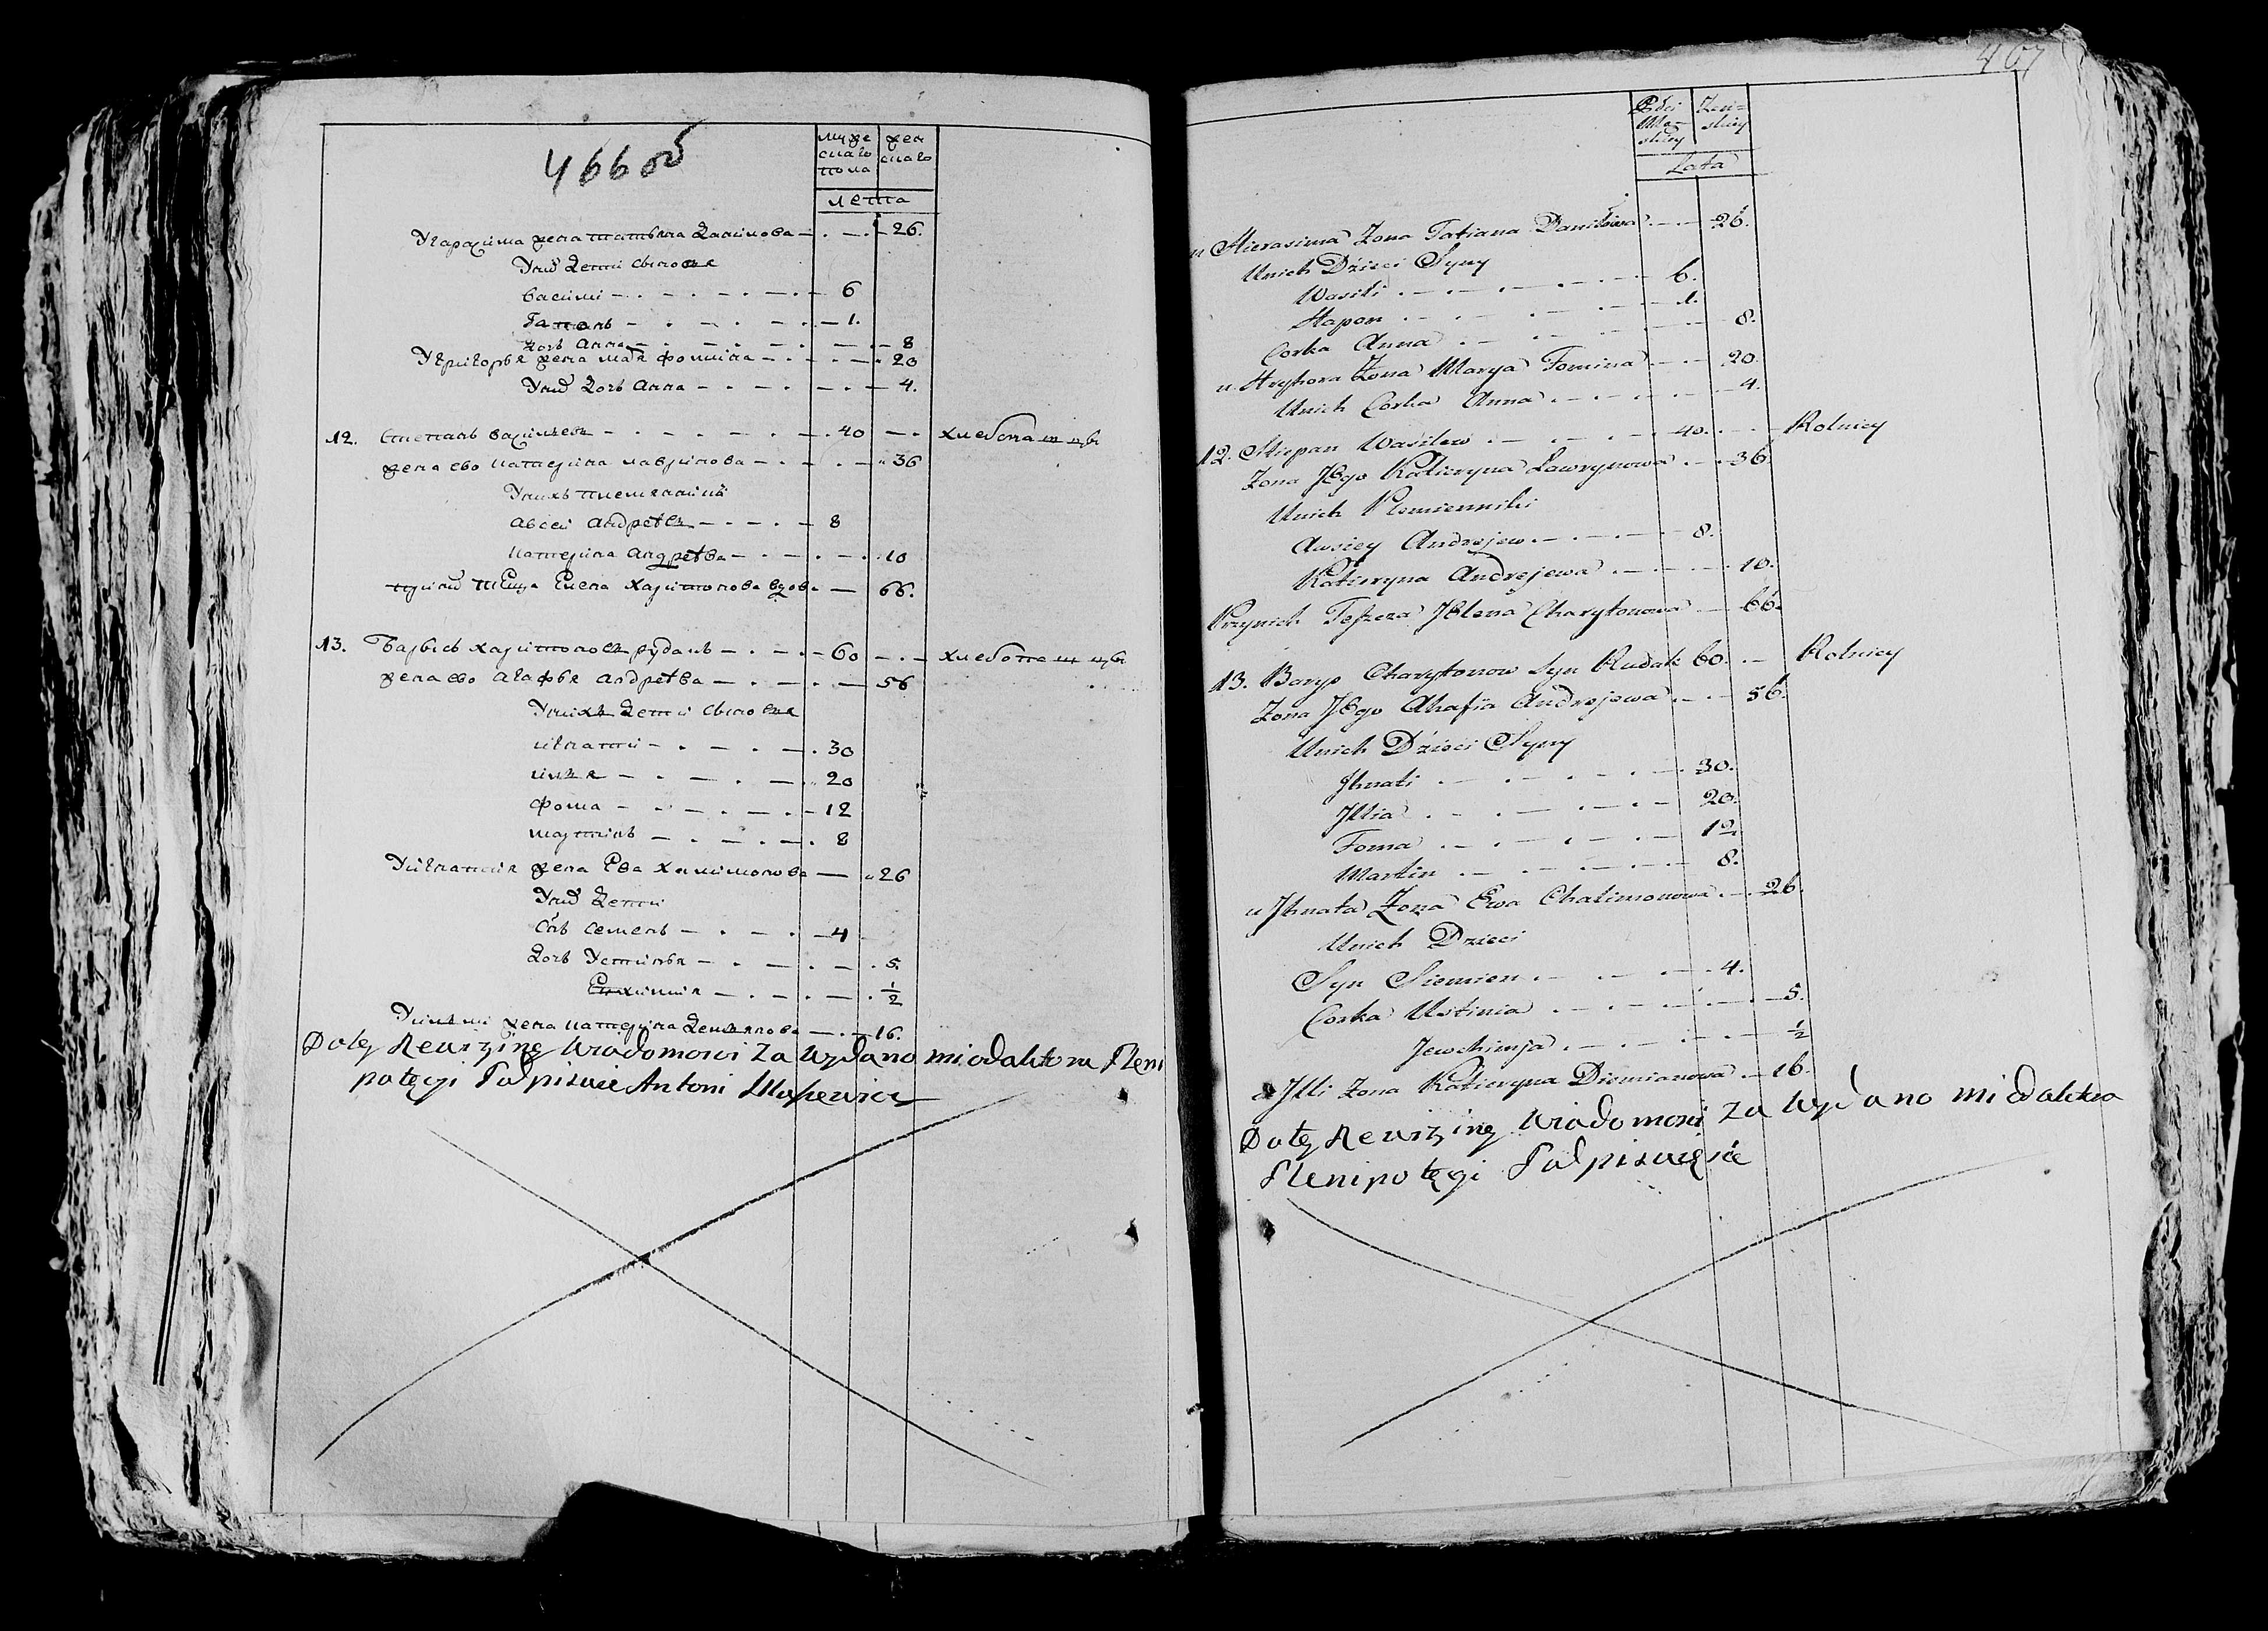 466 об
муже
скаго
пола
жен
скаго
лета
У гарасима жена татьяна Данилова 26.
У них Дети сыновья
василий 6
Гапонъ 1.
дочь Анна 8
У григорья жена марья фомина 20
У них дочь Анна 4.
12. Степанъ васильевъ 40 хлебопашцы
жена ево катерина лавринова 36
У нихъ племянники
Авсей Андреевъ 8
катерина андреева 10
при них теща Елена харитонова вдова 66.
13. Барысъ харитоновъ рудакъ 60 хлебопашцы
жена ево Агафья Андреева 56
У нихъ Дети сыновья
игнатий 30
илья 20
фома 12
мартинъ 8
У игнатия жена Ева халимонова 26
У них Дети
сынъ семенъ 4
дочь Устинья 5.
Евхимия 1/2
У ильи жена катерина демьянова 16.
Do tey Rewiziney Wiadomosci Za Wydano mi od aktora Pleni
potęcyi Podpisuie Antoni
467
Płci
Mę-
skiey
Żeń-
skiey
Lata
u Hierasima Żona Tatiana Daniłowa 26.
Unich Dzieci Syny
Wasili 6.
Hapon 1.
Corka Anna 8.
u Hryhora Żona Marya Fomina 20.
Unich Corka Anna 4.
12. Stiepan Wasilew 40. Rolnicy
Żona Jego Katieryna Ławrynowa 36.
Unich Plemienniki
Awsiey Andrejew 8.
Katieryna Andrejewa 10.
Przynich Teszcza Jelena Charytonowa 66.
13. Barys Charytonow Syn Rudak 60. Rolnicy
Żona Jego Ahafia Andrejewa 56.
Unich Dzieci Syny
Jhnati 30.
Jllia 20.
Foma 12.
Martin 8.
u Jhnata Żona Ewa Chalimonowa 26.
Unich Dzieci
Syn Siemien 4.
Corka Ustinia 5.
Jewchimja 1/2
u Jlli Żona Katieryna Diemianowa 16.
Do tey Rewiziney Wiadomosci Za Wydano mi od aktora
Plenipotęcyi Podpisuię się